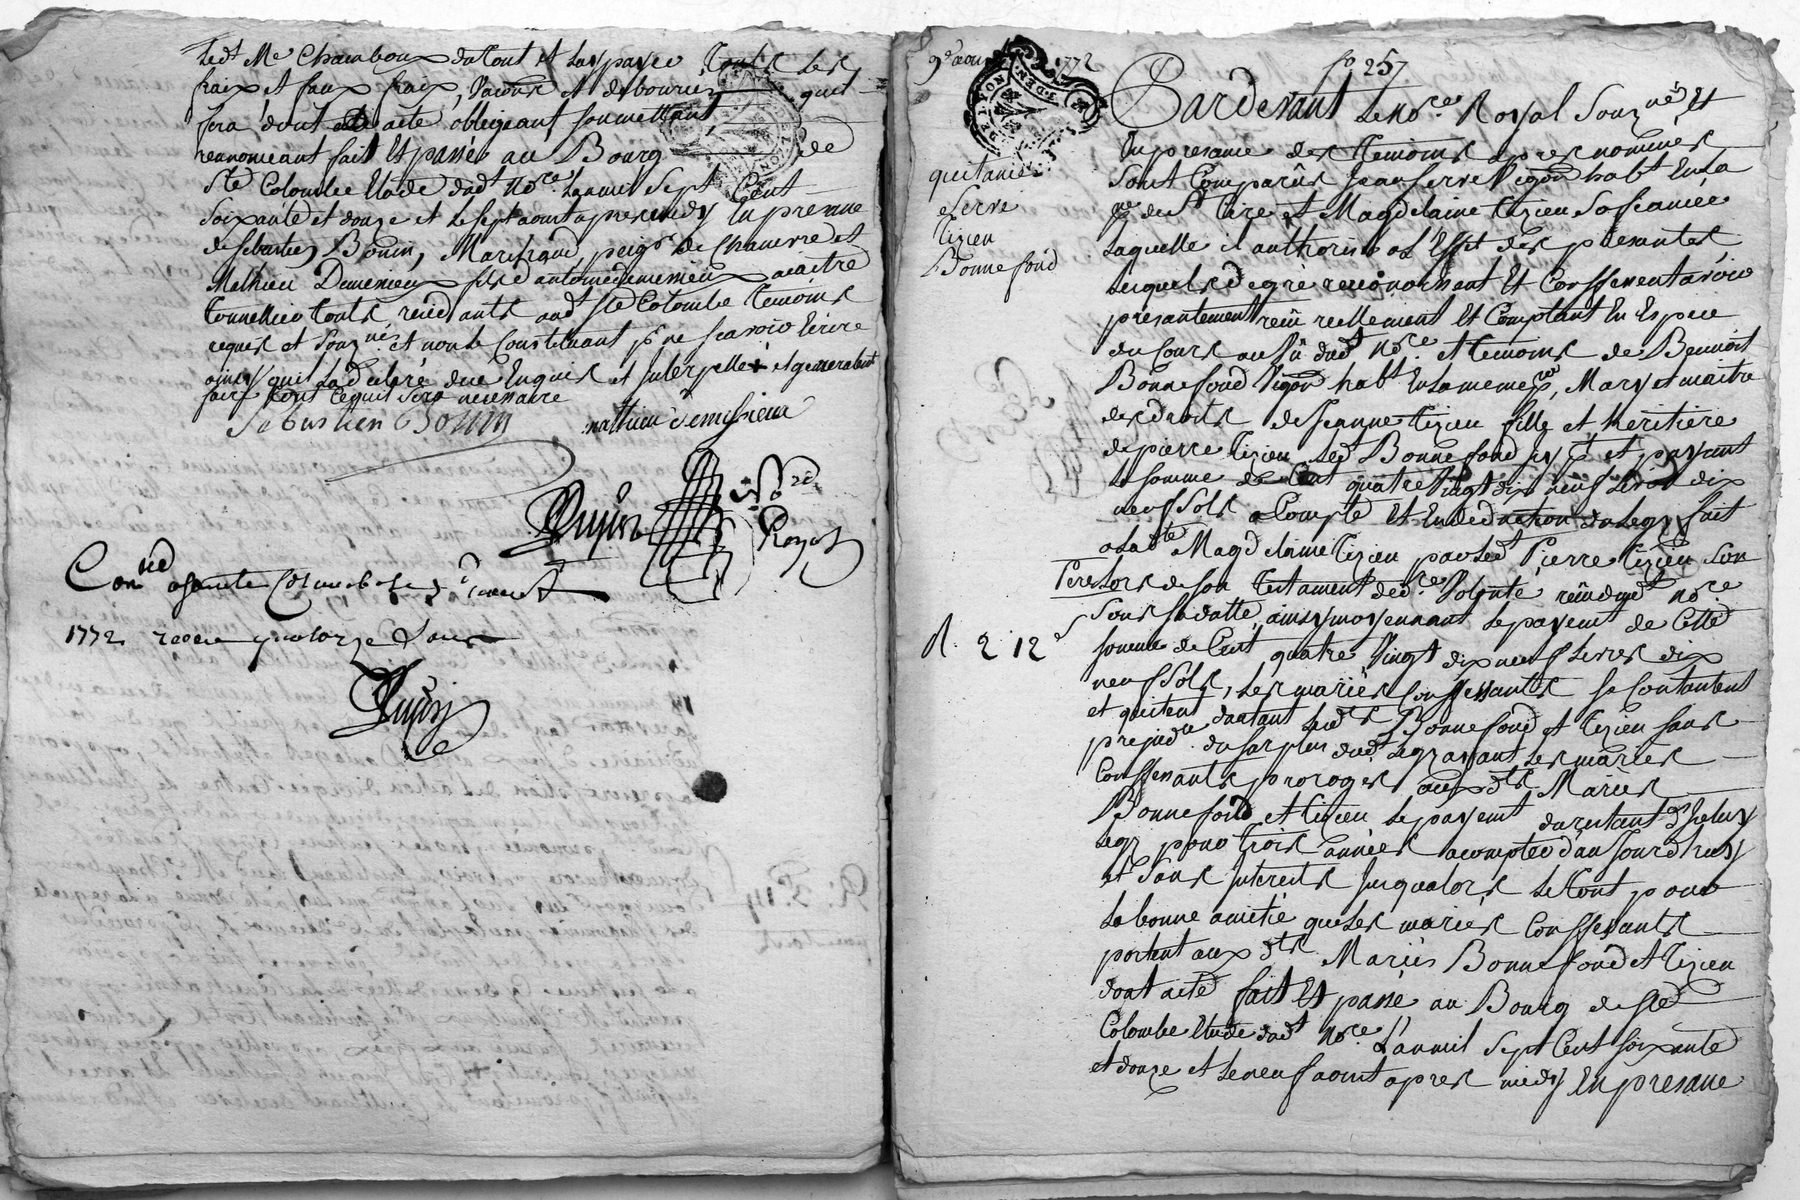 Led.t Me Chamboux du tout et Luy payer tous Les
fraix, et faux fraix, Vacons et debourcés quil
fera dont acte obligeant soumettant
rennonceant fait Et passé au Bourg de
Ste Colombe Etude dud.t No.re Lan mil Sept Cent
Soixante et douze et Le sept aout apres midy En presence
de Sebastien Bonin, peigr de Chanvre et
Mathieu Demissieux fils d'antoine demissieux maitre
Tonnellier touts residants aud.t Ste Colombe temoins
requis et Souz.nés et non le Constituant p.r ne scavoir Ecrire
ainsy quil La declaré due Enquis et Interpellé + et generalement
faire tout ce quil sera necessaire
Sebastien Bonin mathieu demissieux
Dupuis No.re
Royal
Con.lé a Ste Colombe Le
1772 receu quatorze Sous
Dupuis
9e aout 1772
fo 257
Pardevant Le No.re Royal Souz.né Et
En presance des temoins apres nommés
Sont Comparus Jean Serre Vigon hab.t En La
p.se de St Cire et Magdelaine tizien Sa femme
Laquelle il authorise a L'Effet des presantes
Lesquels de gré reconoissent Et Confessent avoir
presantement reçu reellement Et Comptant En Espece
du Cours au Vû dud.t No.re et temoins de Bennoit
Bonnefond Vigon hab.t En La meme p.se, Mary et maitre
des droits de Jeanne tizien fille et heritiere
de pierre tizien Led.t Bonnefond icy p.t et payant
La somme de Cent quatre Vingt dix neuf Livres dix
neuf Sols a Compte Et En deduction du Legs fait
a lad.te Magdelaine tizien par Led.t Pierre tizien Son
Pere Lors de son testament de d.re Volonté reçu dud.t No.re
Sous Sa datte, ainsy moyennant Le payem.t de Cette
somme de Cent quatre Vingt dix neuf Livres dix
neuf Sols, Les mariés Confessants se Contantent
et quittent d'autant Lesd.ts Bonnefond et tizien sans
prejud.e du surplus dud.t Legs ayant Les mariés
Confessants prorogés aux d.ts Mariés
Bonnefond et tizien Le payem.t du restant d'Iceluy
Legs pour trois années a compter d'aujourd'huy
et Sans Interets jusqu'alors Le tout pour
La bonne amitié que Les mariés Confessants
portent aux d.ts Mariés Bonnefond et tizien
dont acte fait Et passé au Bourg de Ste
Colombe Etude dud.t No.re L'an mil Sept Cent soixante
et douze et Le neuf aout apres midy En presance
quitance
Serre
tizien
Bonnefond
R. 2 12 s